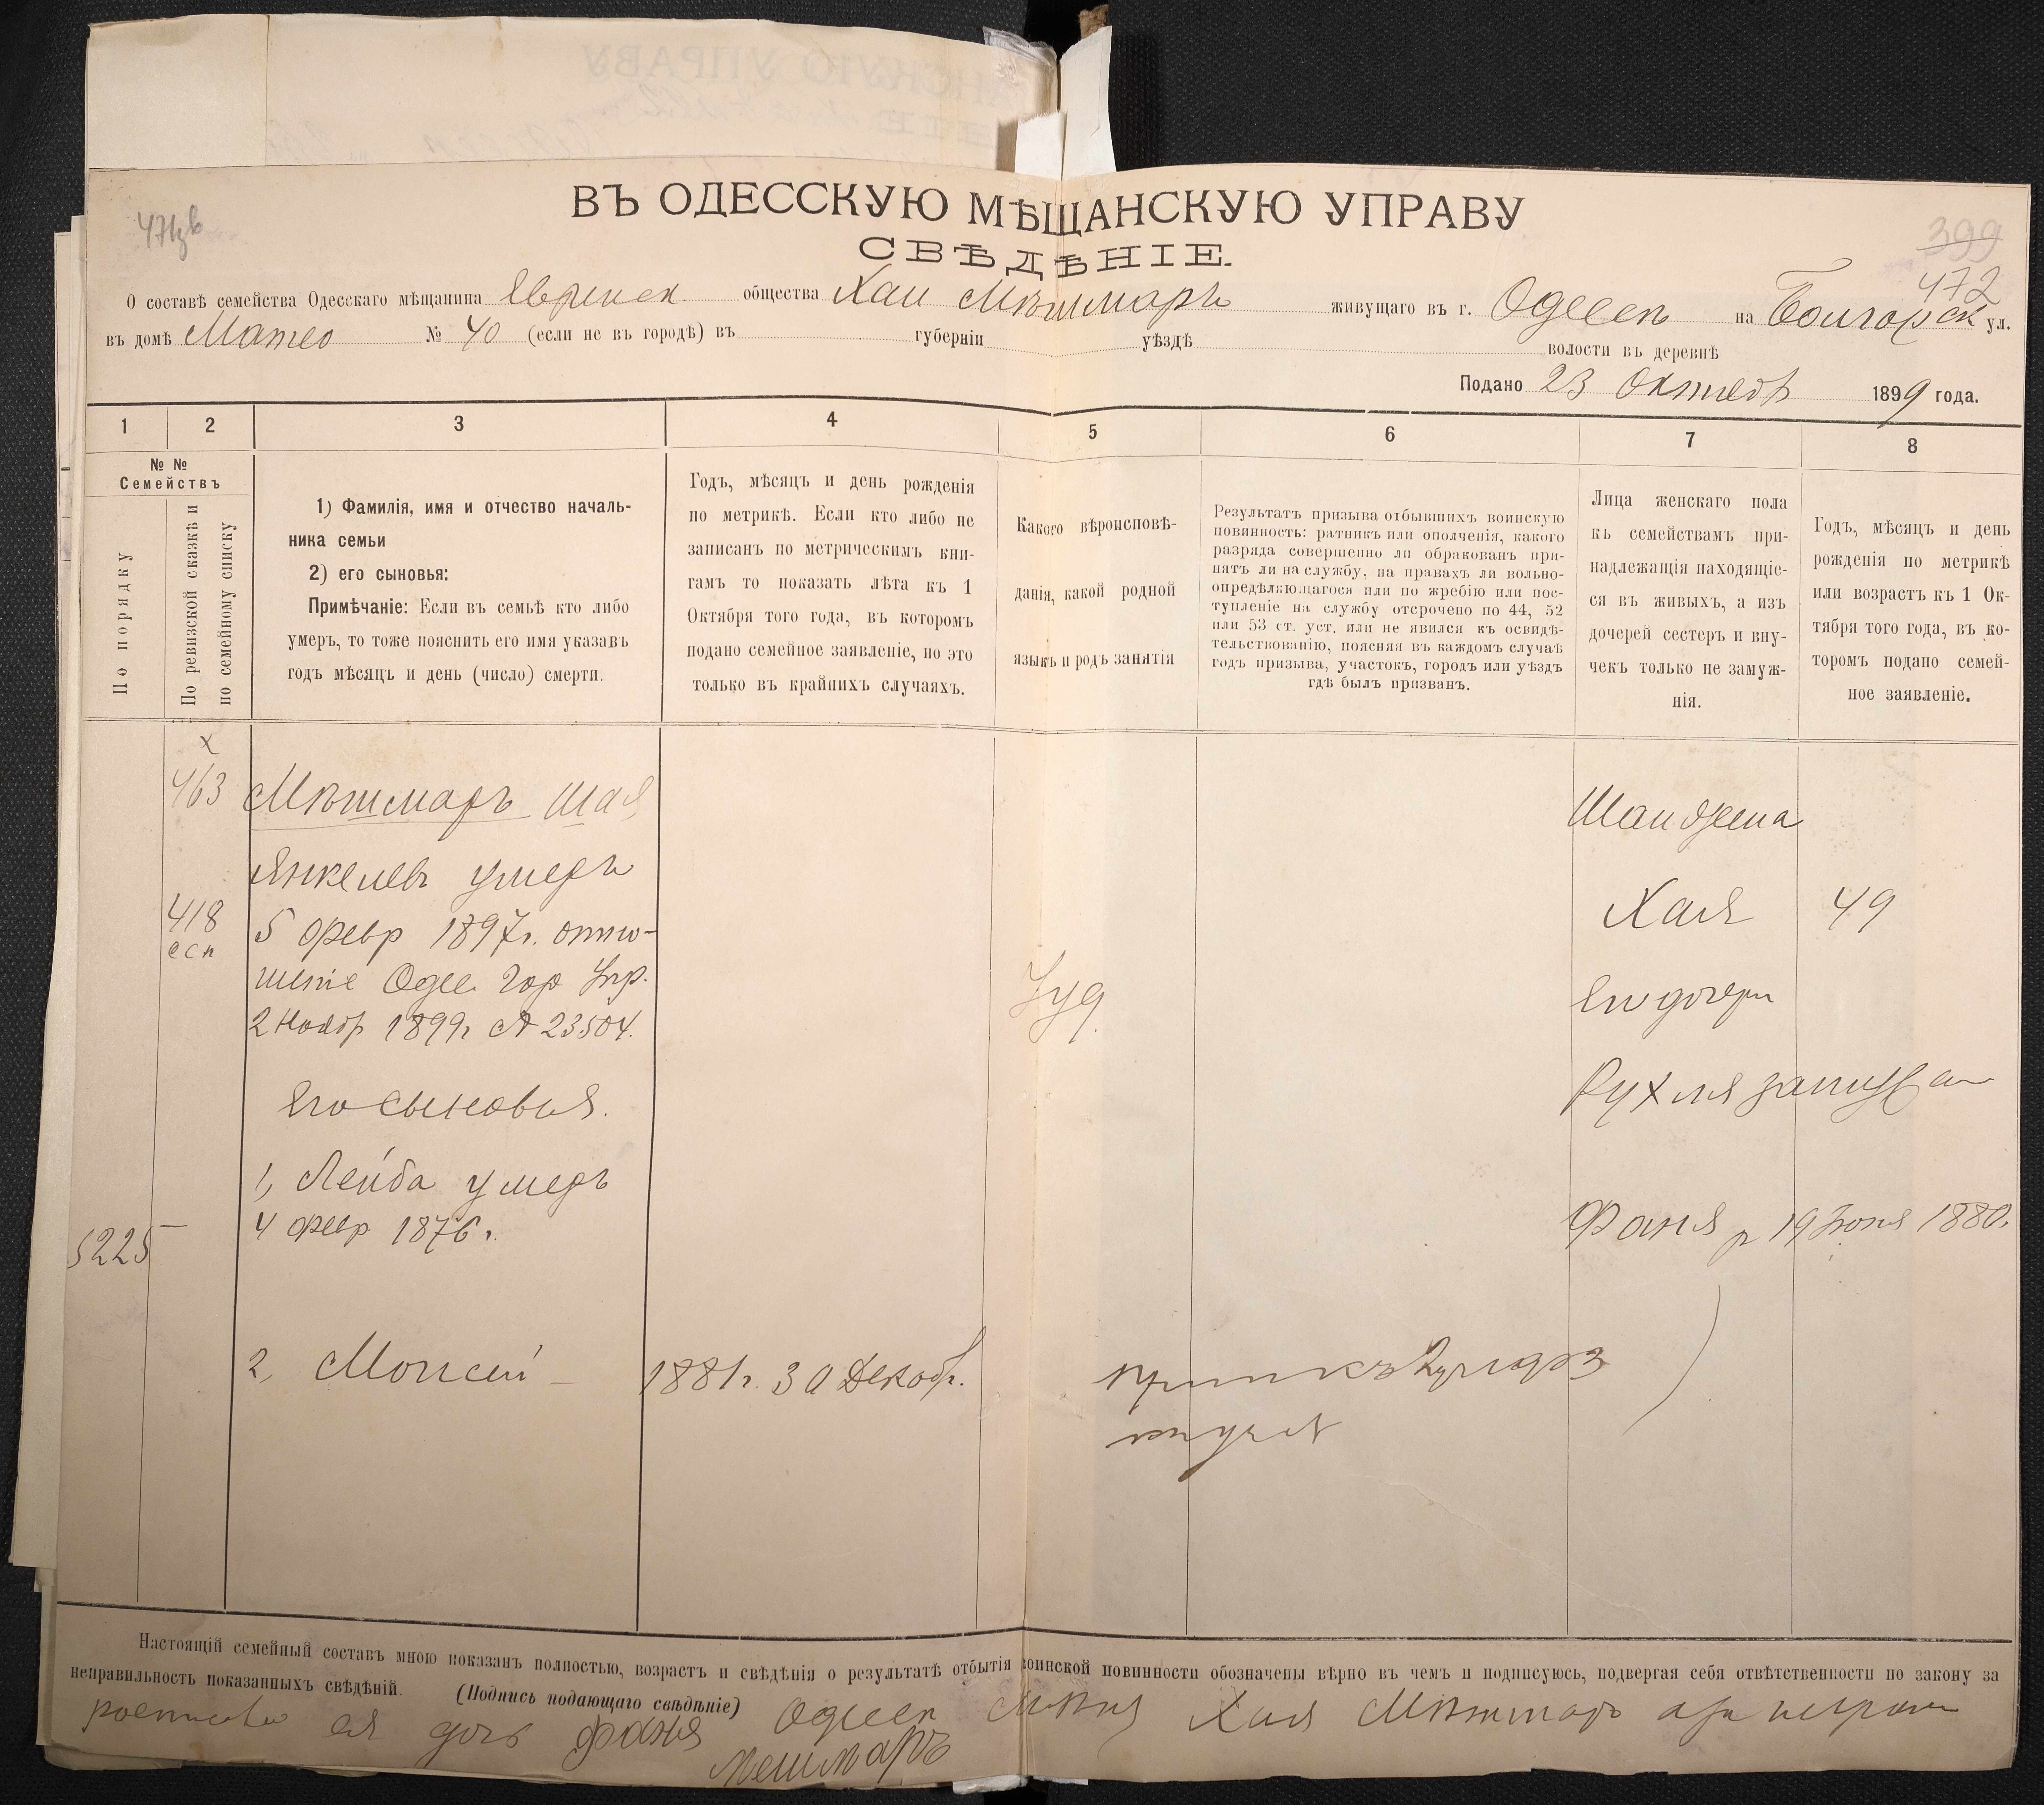 ВЪ ОДЕССКУЮ МѢЩАНСКУЮ УПРАВУ
СВѢДѢНІЕ.
399
472
О составѣ семейства Одесскаго мѣщанина Еврейск общества Хаи Мѣшмаръ живущаго въ г. Одессѣ на Болгарск ул.
въ домѣ Матео № 40 (если не въ городѣ) въ губерніи уѣздѣ волости въ деревнѣ
Подано 23 Октября 1899 года.
1 2 3 4 5 6 7 8
№ №
Семействъ
По порядку
По ревизской сказкѣ и
по семейному списку
1) Фамилія, имя и отчество началь-
ника семьи
2) его сыновья:
Примѣчаніе: Если въ семьѣ кто либо
умеръ, то тоже пояснить его имя указавъ
годъ мѣсяцъ и день (число) смерти.
Годъ, мѣсяцъ и день рожденія
по метрикѣ. Если кто либо не
записанъ по метрическимъ кни-
гамъ то показать лѣта къ 1
Октября того года, въ которомъ
подано семейное заявленіе, но это
только въ крайнихъ случаяхъ.
Какого вѣроисповѣ-
данія, какой родной
языкъ и родъ занятія
Результатъ призыва отбывшихъ воинскую
повинность: ратникъ или ополченія, какого
разряда совершенно ли обракованъ при-
нятъ ли на службу, на правахъ ли вольно-
опредѣляющагося или по жребію или пос-
тупленіе на службу отсрочено по 44, 52
или 53 ст. уст. или не явился къ освидѣ-
тельствованію, поясняя въ каждомъ случаѣ
годъ призыва, участокъ, городъ или уѣздъ
гдѣ былъ призванъ.
Лица женскаго пола
къ семействамъ при-
надлежащія находящіе-
ся въ живыхъ, а изъ
дочерей сестеръ и вну-
чекъ только не замуж-
нія.
Годъ, мѣсяцъ и день
рожденія по метрикѣ
или возрастъ къ 1 Ок-
тября того года, въ ко-
торомъ подано семей-
ное заявленіе.
x
463 Мѣшмаръ Шая
Янкелевъ умеръ
418
есп
5 февр 1897г. отно-
шеніе Одес. Гор Упр.
2 Ноябр 1899г № 23504.
Его сыновья.
1, Лейба умеръ
4 февр 1876 г.
5225
2, Моисей — 1881г. 30 Декабр.
Іуд.
Шаи жена
Хая 49
Его дочери
Рухля замуж
Фаня р 19 Іюня 1880.
Настоящій семейный составъ мною показанъ полностью, возрастъ и свѣдѣнія о результатѣ отбытія воинской повинности обозначены вѣрно въ чемъ и подписуюсь, подвергая себя отвѣтственности по закону за
неправильность показанныхъ свѣдѣній. (Подпись подающаго свѣдѣніе) Одесск Мѣщ Хая Мѣшмаръ а
ея дочь Фаня
Мешмаръ